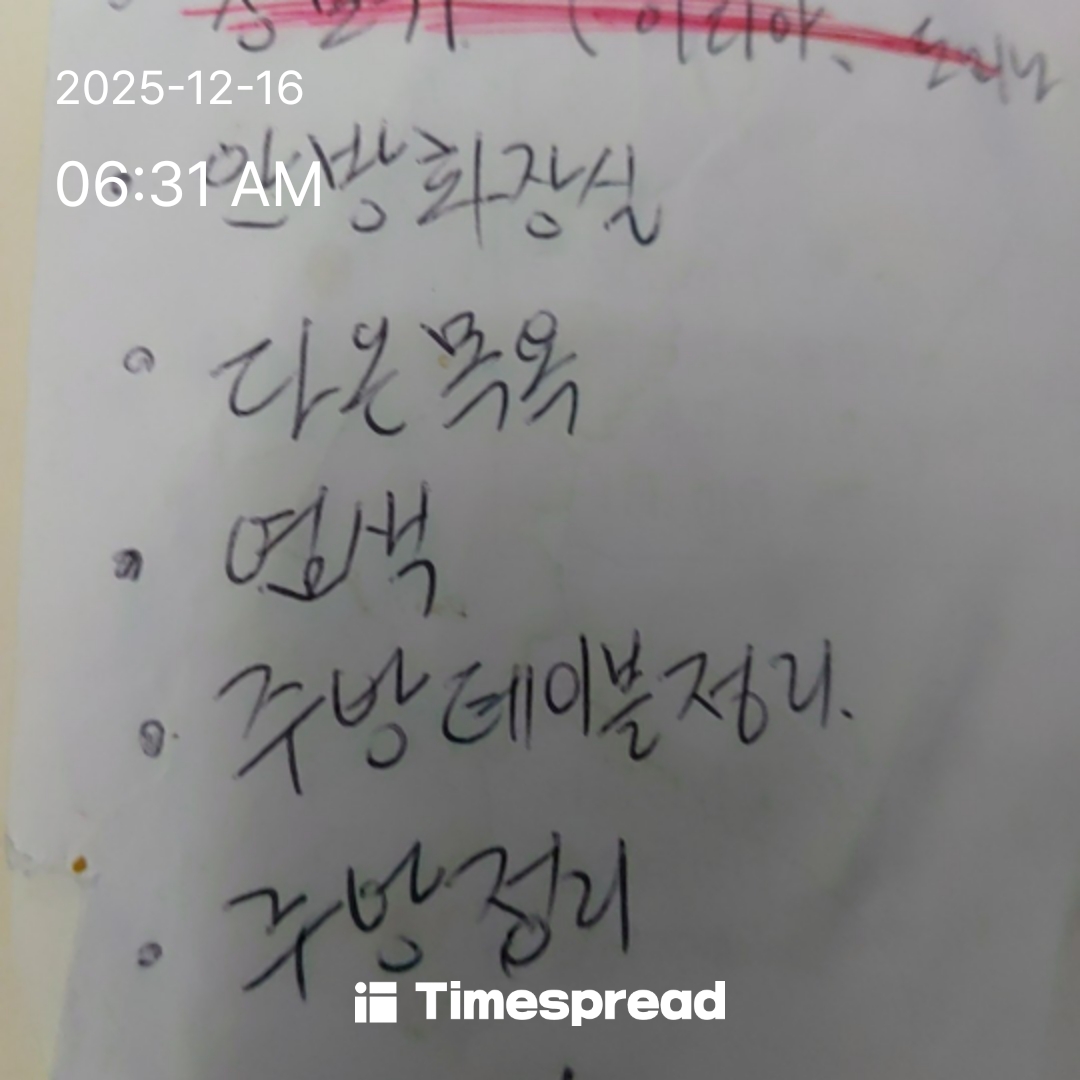 2025-12-16
06:31 AM
안방화장실
다온목욕
염색
주방테이블정리.
주방정리
Timespread